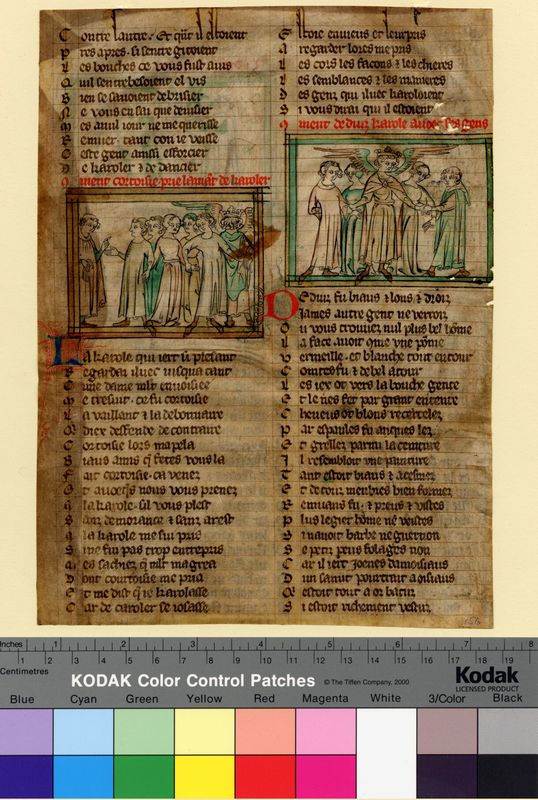 C ontre lautre . Et qnt il estoient
P res apres . si sentre gitoient
L es bouches ce vous fust auis
Q uil sentrebesoient el vis
B ien se sauoient debrisier
N e vous en sai que deuisier
M es a nul ior ne me queisse
R emuer tant con ie veisse
C este gent ainsi esforcier
D e karoler & de dancier
ment cortoisie prie lamant de karoler
L a karole qui iert si plesant
R egardai iluec iusqua tant
C une dame mlt enuoisiee
M e tresuit . ce fu cortoisie
L a vaillant & la debonnaire
Q diex deffende de contraire
C ortoisie lors mapela
B iaus amis q fetes vous la
F ait cortoisie ca venez
E t auecqs nous vous prenez
A la karole sil vous plest
S anz demorance & sanz arest
A la karole me sui pris
S i ne fu pas trop entrepris
M es sachiez q mlt magrea
D ont courtoisie me pria
E t me dist q ie karolasse
C ar de caroler se iosasse
E stoie enuieus et seurpris
A regarder lores me pris
L es cors les facons & les chieres
L es semblances & les manieres
D es genz qui iluec karoloient
S i vous dirai qui il estoient
ment deduiz karole auoec ses gens
D eduiz fu biaus & lons & droiz
James autre gent ne verroiz
O u vous truissiez nul plus bel home
L a face auoit come vne pome
V ermeille . et blanche tout entour
C ointes fu & de bel atour
L es iex ot vers la bouche gente
E t le nes fet par grant entente
C heueus ot blons recercelez
P ar espaules fu auques lez
E t grelles parmi la ceinture
I l resembloit vne painture
T ant estoit biaus & acesmez
E t de touz menbres bien formez
R emuans fu . & preus & vistes
P lus legier home ne veistes
S i nauoit barbe ne guernon
S e petiz peus folages non
C ar il iert joenes damoisiaus
D un samit pourtrait a oisiaus
Q estoit tout a or batuz
S i estoit richement vestuz
Inches 1 2 3 4 5 6 7 8
Centimetres 1 2 3 4 5 6 7 8 9 10 11 12 13 14 15 16 17 18 19
KODAK Color Control Patches © The Tiffen Company, 2000 Kodak
LICENSED PRODUCT
Blue Cyan Green Yellow Red Magenta White 3/Color Black